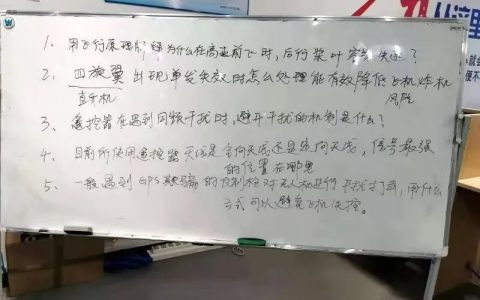 1、用飞行原理解释为什么在高速前飞时,后行桨叶容易失速?
2、四旋翼出现单发失效时怎么处理能有效降低飞机炸机
直升机
风险
3、遥控器在遇到同频干扰时,避开干扰的机制是什么?
4、目前所使用遥控器天线是全向天线还是定向天线,信号最强
的位置在哪里
5、一般遇到GPS欺骗的反制枪对无人机进行干扰打击,用什么
方式可以避免飞机失控。
从这里